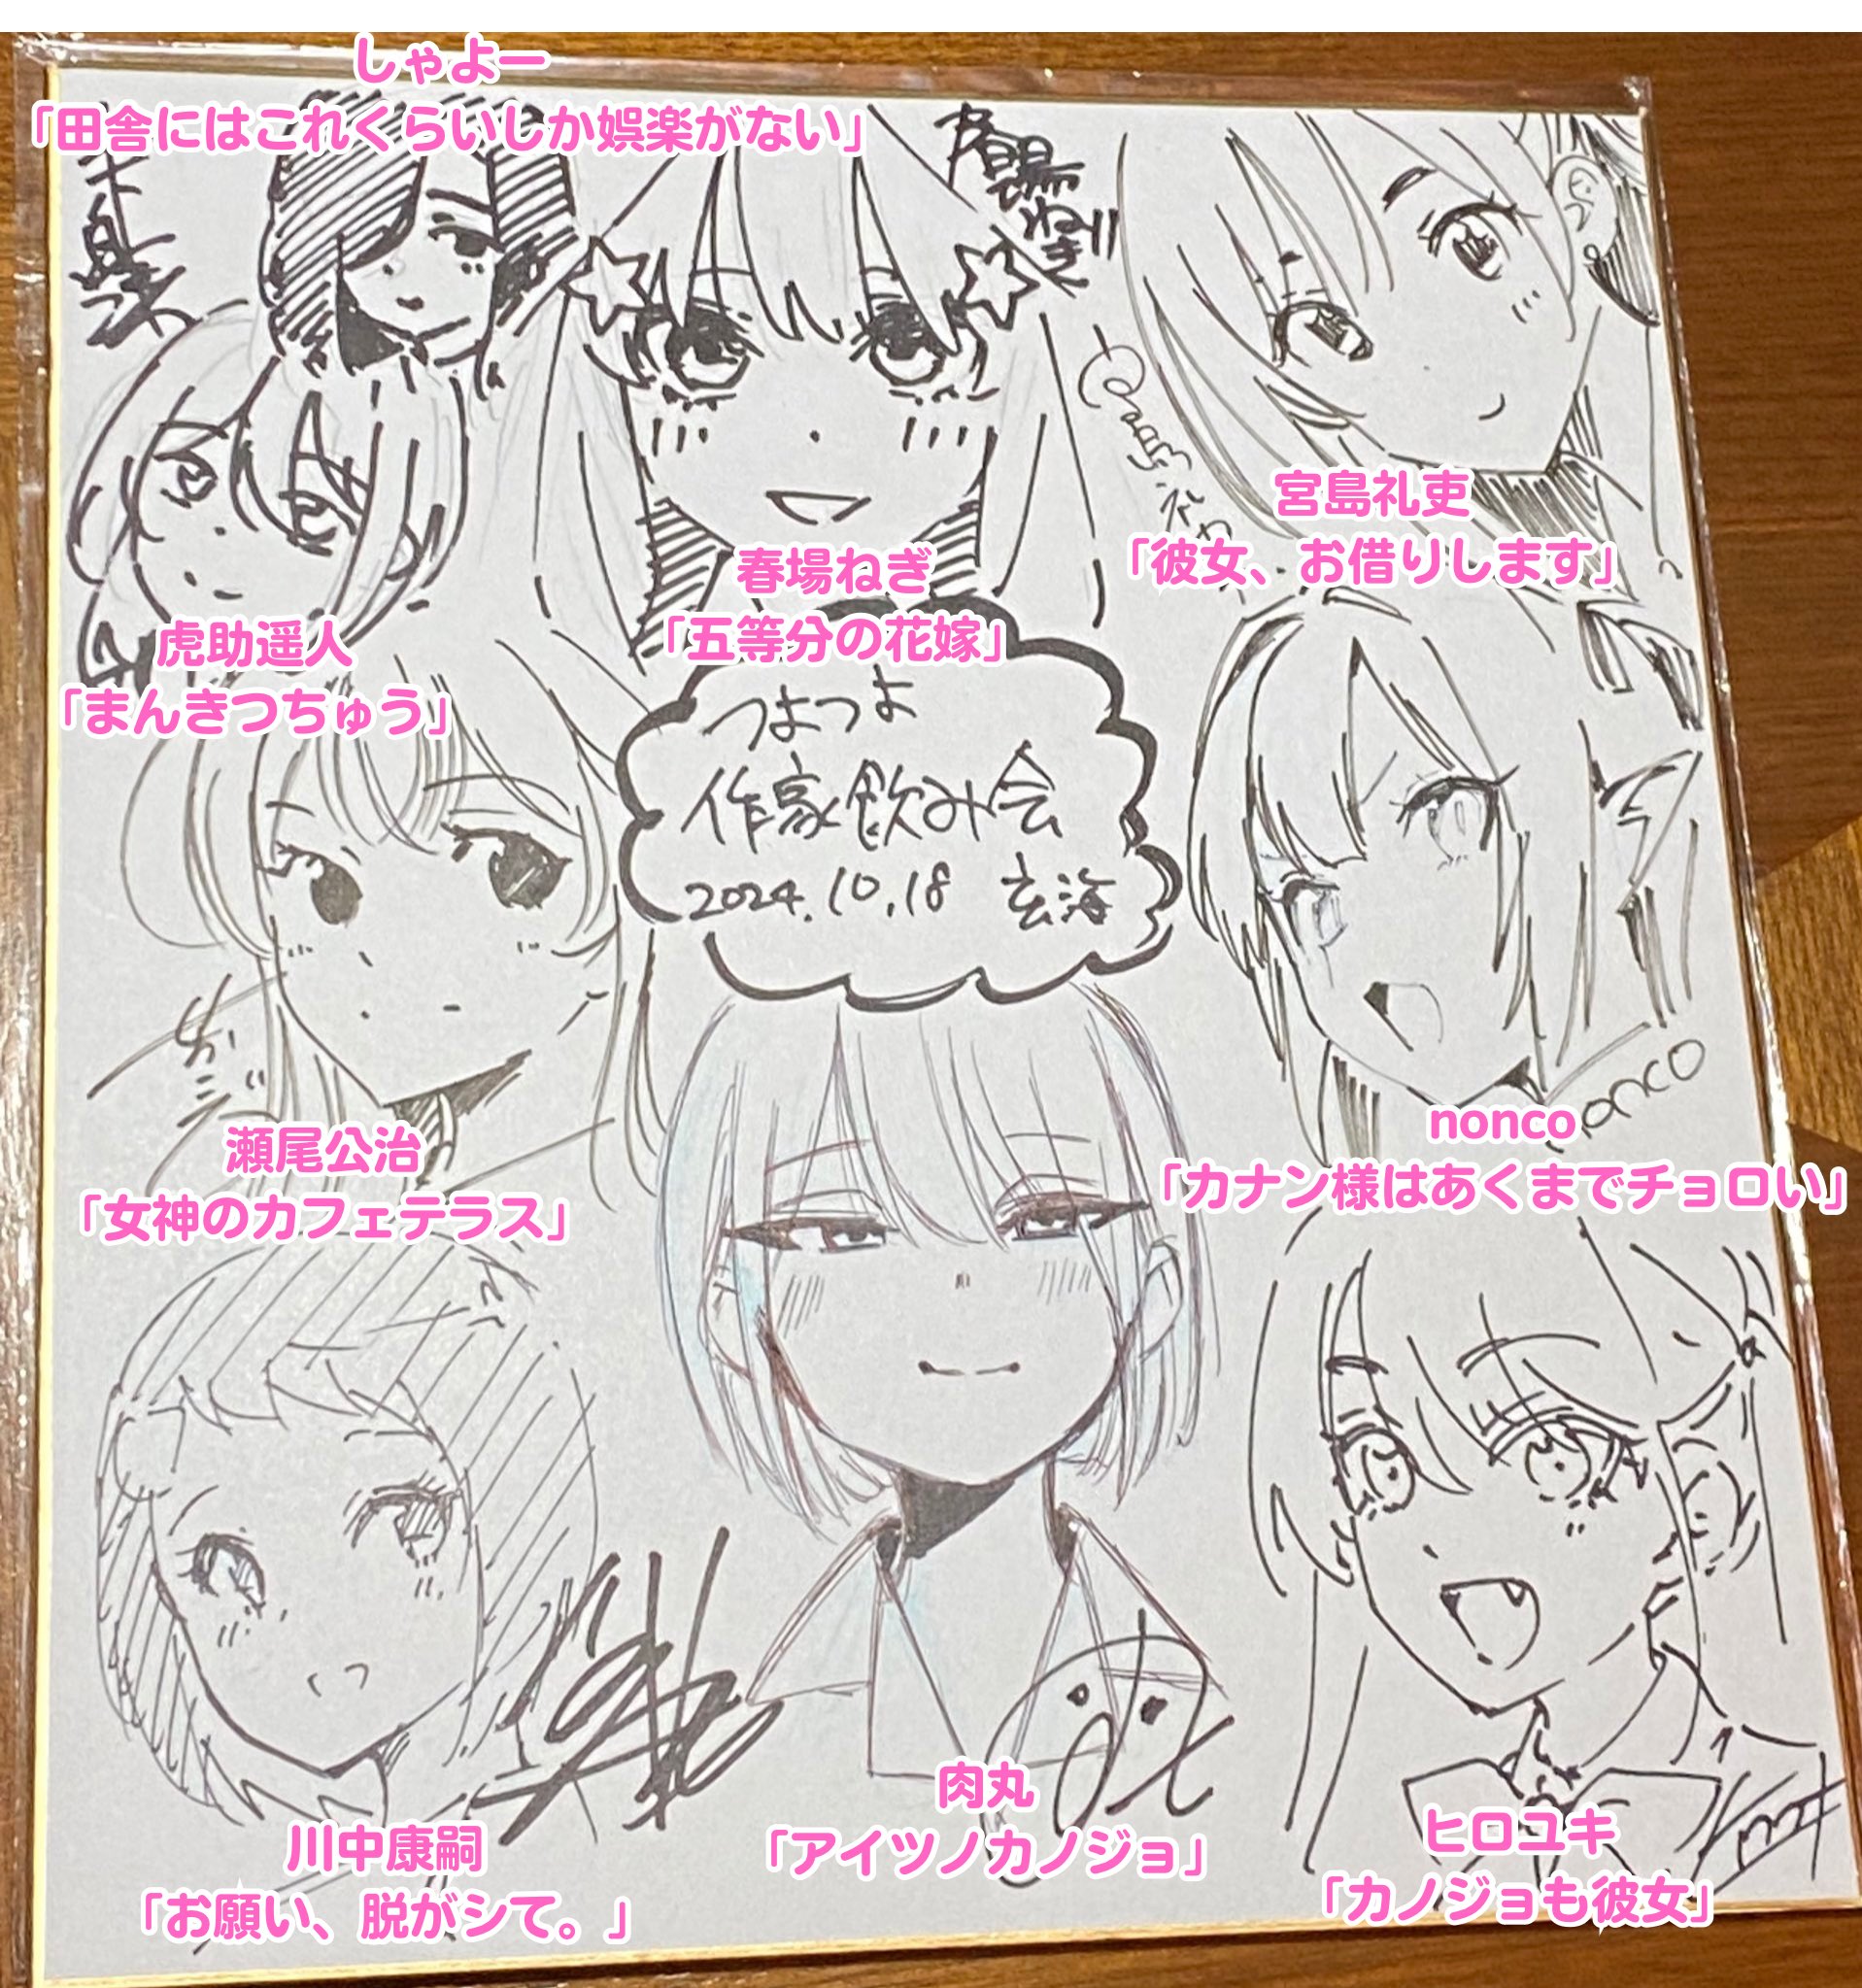 しゃよー
「田舎にはこれくらいしか娯楽がない」
春場ねぎ
宮島礼吏
「彼女、お借りします」
春場ねぎ
「五等分の花嫁」
虎助遥人
「まんきつちゅう」
つよつよ
作家飲み会
2024.10.18 玄海
nonco
nonco
「カナン様はあくまでチョロい」
瀬尾公治
「女神のカフェテラス」
肉丸
「アイツノカノジョ」
ヒロユキ
「カノジョも彼女」
川中康嗣
「お願い、脱がシて。」